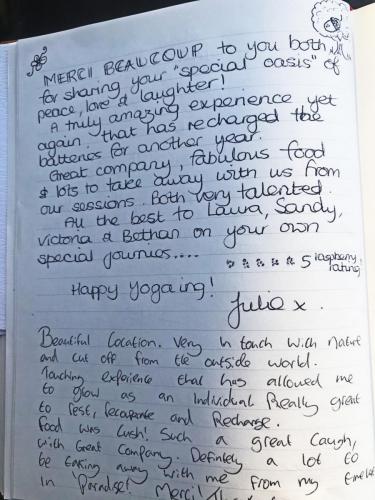 MERCI BEAUCOUP to you both
for sharing your "special oasis" of
peace, love & laughter!
A truly amazing experience yet
again, that has recharged the
batteries for another year.
Great company, fabulous food
& lots to take away with us from
our sessions. Both very talented.
All the best to Laura, Sandy,
Victoria & Bethan on your own
special journies....
5 raspberry
rating!
Happy Yogaing!
Julie x.
Beautiful Location. Very in touch with Nature
and cut off from the outside world.
Touching experience that has allowed me
to grow as an Individual. Really great
to Rest, Recuperate and Recharge.
Food was Lush! Such a great laugh,
with Great Company. Definitely a lot to
be taking away with me from my time
in 'Paradise! Merci